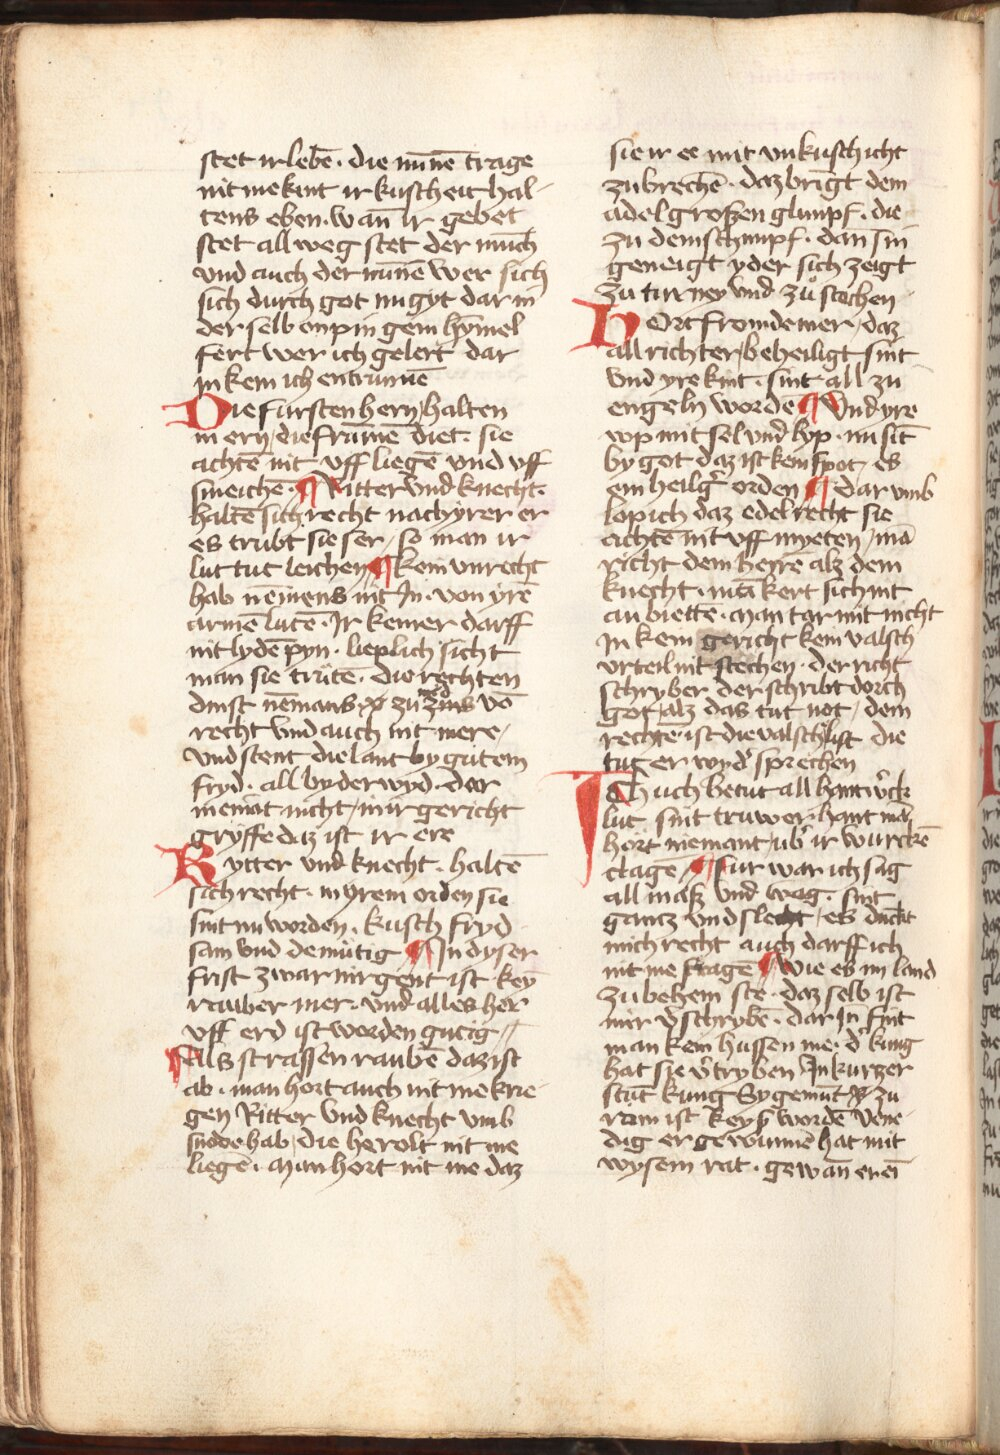 stet ir lebē · die nūnē trage
nit me kint ir kuscheit hal-
tens eben · wañ ir gebet
stet all weg stet der mūch
vnd auch der nūnē wer sich
sich durch got nu gyt dar in
der selb on pin gem hȳmel
fert wer ich gelert dar
in kem ich entrunnē
Die fursten hern halten
in ern / die framē diet · sie
achtē nit vff liegē vnd vff
smeichē · ¶ Ritter vnd knecht ·
haltē sich recht nach yrer er
es trubt sie ser / so man ir
lut tut leichen ¶ kein vnrecht
hab nēmens nit In · von yrē
armē lutē · Ir keiner darff
nit lydē pyn · lieplich sicht
man sie trütē · die rechten
dinst nēmans zu zins vō
recht vnd auch nit mere /
Vnd stent die lant by gutem
fryd · all by der wyd · der
niemāt nicht / mir gericht
gryffe daz ist ir ere
Rytter vnd knecht · haltē
sich recht · in yrem orden sie
sint nu worden · kusch fryd
sam vnd demütig ¶ In dyser
frist zwar nirgent ist key
rauber mer · vnd alles her
vff erd ist worden gutig
¶ als strassen raubē daz ist
ab · man hort auch nit me krie-
gen Ritter vnd knecht vmb
snode hab / die herolt nit me
liegē · Man hort nit me daz
sie ir ee mit vnkuschicht
zubrechē · daz bringt dem
adel großen glimpf · die
zu dem schimpf · dañ sin
geneigt yder sich zeigt
zu turney vnd zů stechen
Hort fromde mer / daz
all richter / beheiligt sint
vnd yre kint · sint all zu
engeln wordē ¶ Vnd yre
wyp mit sel vnd lyp · nu sīt
by got daz ist kein spot · es
ein heilgʼ orden ¶ dar vmb
lop ich daz edel recht sie
achtē nit vff myeten / mā
richt dem herrē alz dem
knecht · mā kert sich nit
an biette · Man tar mit nicht
In kein gericht kein valsch
vrteil nit stechen · der richt
schryber der schribt dorch
got / alz das tut not / dem
rechtē · ist die valsch list die
tut er wydʼ sprechen
Ich uch betut all hantwʼck
lut sint truwer · hant mā
hört niemant / ubʼ ir wurckē
clagē ¶ fur war ich sag
all maß vnd wag · sint
gantz vnd slecht / es dūckt
mich recht auch darff ich
nit me fragē ¶ Wie es im land
zu behem ste · daz selb ist
mir vʼschrybē · dar In sint
man kein hussen me · dʼ kung
hat sie vʼtryben In kurzer
stūt kung Sygemūt zu
rom ist keysʼ wordē Vene-
dig er gewunnē hat mit
wysem rat · gewan er ein